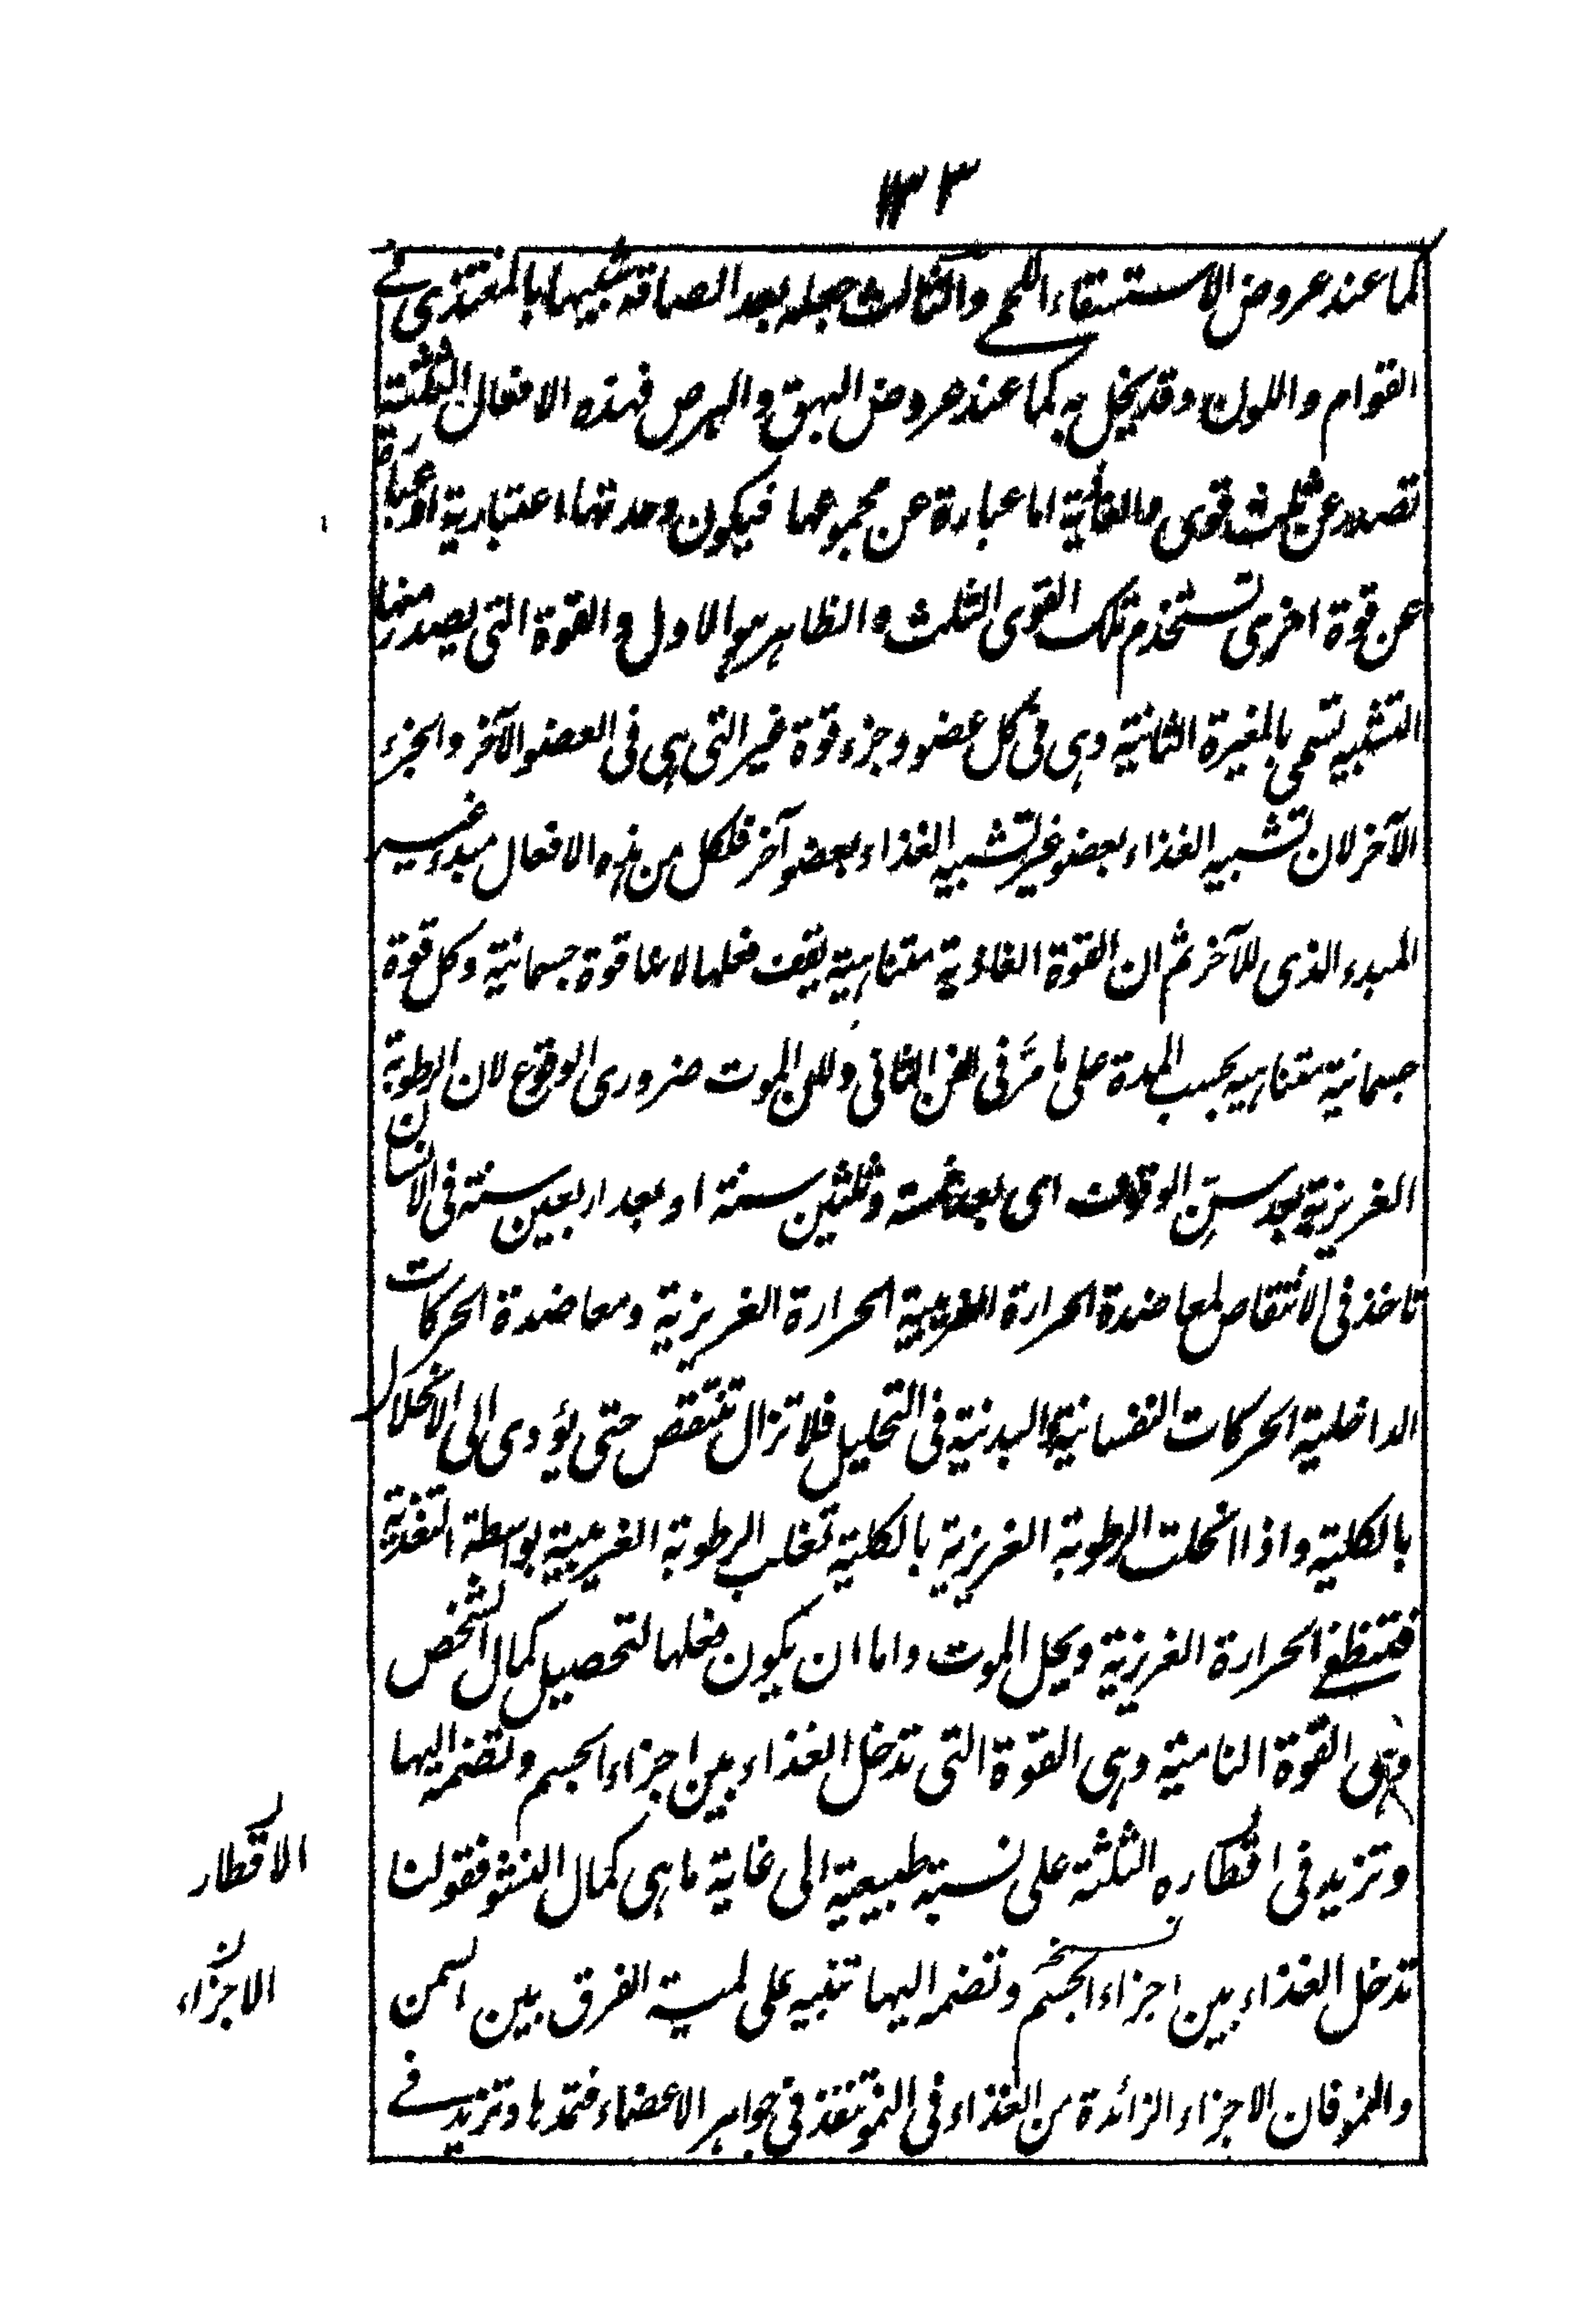 ١٣٣
كما عند عروض الاستسقاء اللحمي والثالث جعله بعد الصاقه شبيها بالمغتذى في
القوام واللون وقد يخل به كما عند عروض البهق والبرص فهذه الافعال الثلثة
تصدر عن ثلث قوى والغاذية اما عبارة عن مجموعها فيكون وحدتها اعتبارية او عبارة
عن قوة اخرى تستخدم تلك القوى الثلث والظاهر هو الاول والقوة التى يصدر منها
التشبيه تسمى بالمغيرة الثانية وهى فى كل عضو وجزء قوة غير التى هى فى العضو الآخر والجزء
الآخر لان تشبيه الغذاء بعضو غير تشبيه الغذاء بعضو آخر فلكل من هذه الافعال مبدء غير
المبدء الذى للآخر ثم ان القوة الغاذية متناهية يقف فعلها لانها قوة جسمانية وكل قوة
جسمانية متناهية بحسب المدة على ما مَرّ فى الفن الثانى ولان الموت ضرورى الوقوع لان الرطوبة
الغريزية بعد سن الوقوف اى بعد خمسة وثلثين سنة او بعد اربعين سنة فى الانسان
تاخذ فى الانتقاص لمعاضدة الحرارة الغريبية الحرارة الغريزية ومعاضدة الحركات
الداخلية الحركات النفسانية البدنية فى التحليل فلا تزال تنتقص حتى يؤدى الى الانحلال
بالكلية واذا انحلت الرطوبة الغريزية بالكلية تغلب الرطوبة الغريبية بواسطة التغذية
فتنطفئ الحرارة الغريزية ويحل الموت واما ان يكون فعلها لتحصيل كمال الشخص
وهى القوة النامية وهى القوة التى تدخل الغذاء بين اجزاء الجسم وتضمه اليها
وتزيد فى اقطاره الثلثة على نسبة طبيعية الى غاية ما هى كمال النشو فقولنا
الاقطار
تدخل الغذاء بين اجزاء الجسم وتضمه اليها تنبيه على لمية الفرق بين السمن
الاجزاء
والنمو فان الاجزاء الزائدة من الغذاء فى النمو تنفذ فى جواهر الاعضاء فتمدها وتزيد في